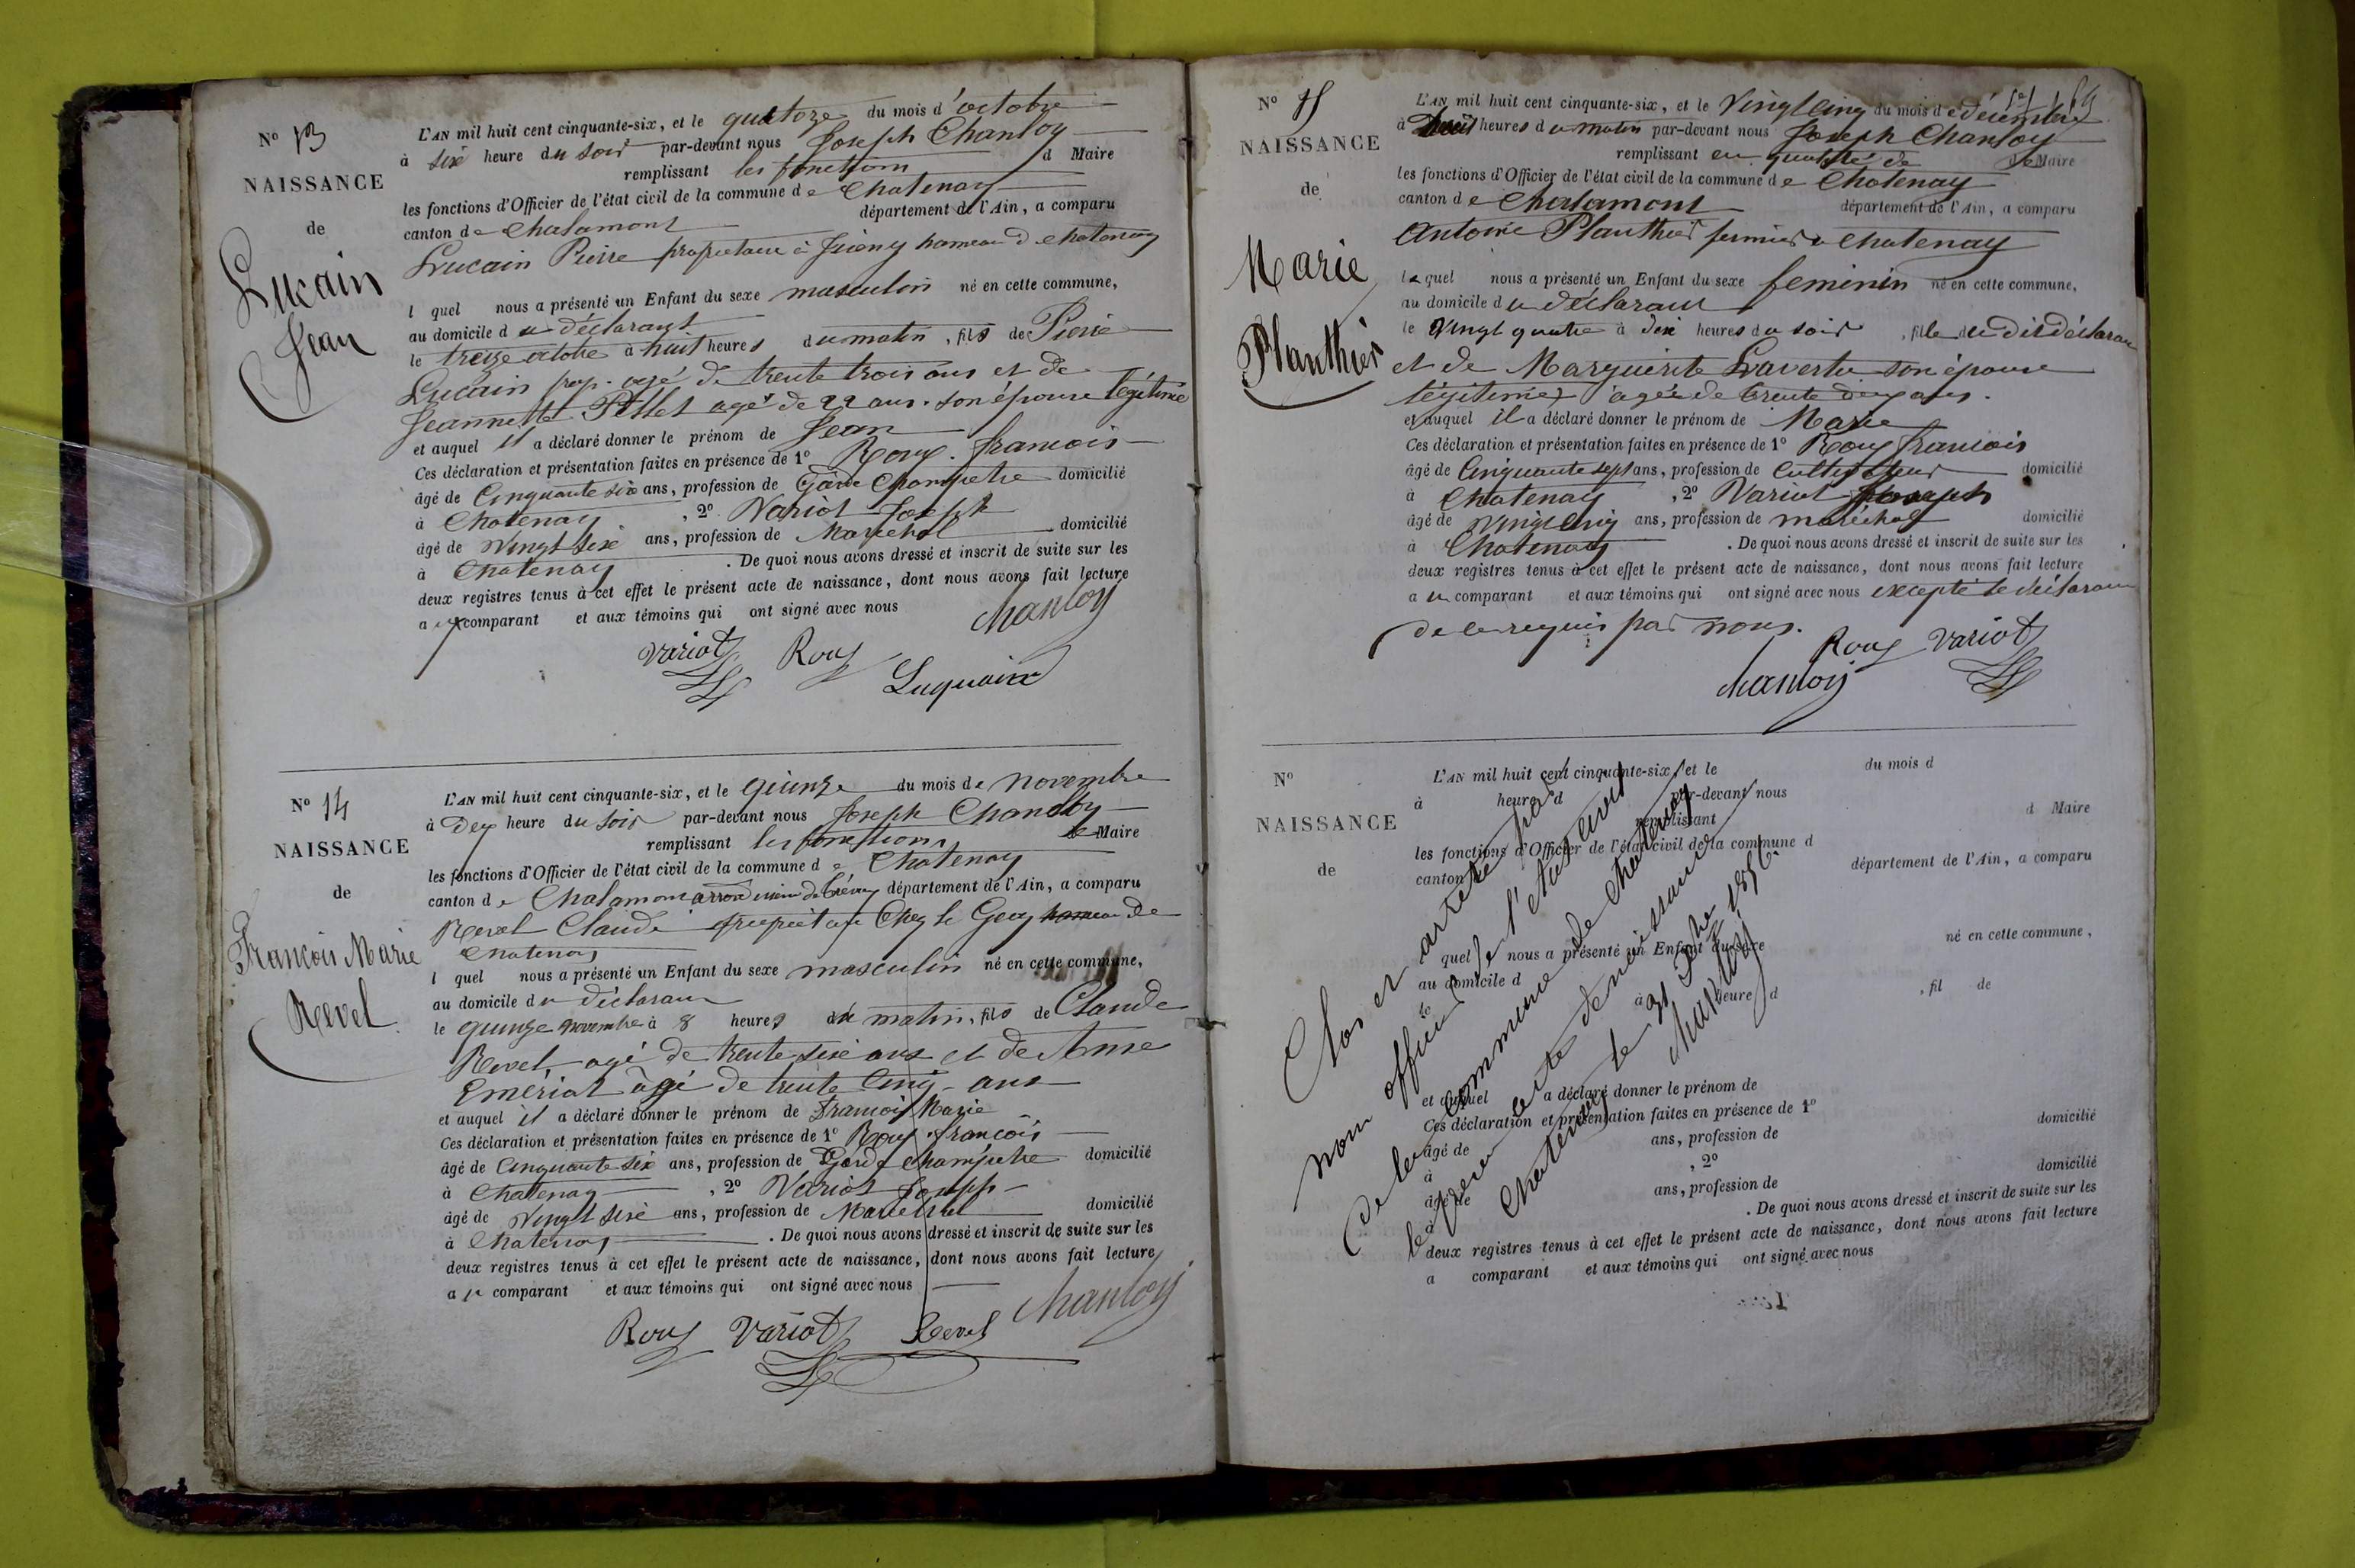 N° 13
NAISSANCE
de
Lucain
Jean
L'AN mil huit cent cinquante-six, et le quatorze du mois d'octobre
à six heure du soir par-devant nous Joseph Chanloy
remplissant les fonctions d Maire
les fonctions d'Officier de l'état civil de la commune de Chatenay
canton de Chalamont département de l'Ain, a comparu
Lucain Pierre propriétaire à hameau de chatenay
l quel nous a présenté un Enfant du sexe masculin né en cette commune,
au domicile du déclarant
le treize octobre à huit heures du matin, fils de Pierre
Lucain prop. agé de trente trois ans et de
Jeannette Pellet agé de 22 ans. son épouse légitime
et auquel il a déclaré donner le prénom de Jean
Ces déclaration et présentation faites en présence de 1° Roux francois
âgé de Cinquante six ans, profession de Garde Champetre domicilié
à Chatenay, 2° Variot Joseph
âgé de Vingt six ans, profession de Marechal domicilié
à Chatenay. De quoi nous avons dressé et inscrit de suite sur les
deux registres tenus à cet effet le présent acte de naissance, dont nous avons fait lecture
au comparant et aux témoins qui ont signé avec nous Chanloy
Variot Roux Luquain
N° 14
NAISSANCE
de
François Marie
Revel
L'AN mil huit cent cinquante-six, et le quinze du mois de novembre
à Dex heure du soir par-devant nous Joseph Chanloy
remplissant les fonctions de Maire
les fonctions d'Officier de l'état civil de la commune de Chatenay
canton de Chalamont de Trévoux département de l'Ain, a comparu
Revel Claude propriétaire Chez le Geay hameau de
Chatenay
l quel nous a présenté un Enfant du sexe masculin né en cette commune,
au domicile du déclarant
le quinze novembre à 8 heures du matin, fils de Claude
Revel, agé de trente six ans et de Anne
Emeriat âgé de trente Cinq ans
et auquel il a déclaré donner le prénom de francois Marie
Ces déclaration et présentation faites en présence de 1° Roux francois
âgé de Cinquante six ans, profession de Garde champetre domicilié
à Chatenay, 2° Variot Joseph
âgé de Vingt six ans, profession de Marechal domicilié
à Chatenay. De quoi nous avons dressé et inscrit de suite sur les
deux registres tenus à cet effet le présent acte de naissance, dont nous avons fait lecture
au comparant et aux témoins qui ont signé avec nous
Roux Variot Revel Chanloy
N° 15
NAISSANCE
de
Marie
Planthier
L'AN mil huit cent cinquante-six, et le Vingt cinq du mois de décembre
à huit heures du matin par-devant nous Joseph Chanloy
remplissant en qualité de de Maire
les fonctions d'Officier de l'état civil de la commune de Chatenay
canton de Chalamont département de l'Ain, a comparu
Antoine Planthier fermier a Chatenay
le quel nous a présenté un Enfant du sexe feminin né en cette commune,
au domicile du déclarant
le Vingt quatre à dix heures du soir, fille du dit déclarant
et de Marguerite Laverte son épouse
légitime agée de trente deux ans.
et auquel il a déclaré donner le prénom de Marie
Ces déclaration et présentation faites en présence de 1° Roux francois
âgé de Cinquante sept ans, profession de Cultivateur domicilié
à Chatenay, 2° Variot Joseph
âgé de Vingt cinq ans, profession de maréchal domicilié
à Chatenay. De quoi nous avons dressé et inscrit de suite sur les
deux registres tenus à cet effet le présent acte de naissance, dont nous avons fait lecture
au comparant et aux témoins qui ont signé avec nous excepté le déclarant
de ce requis par nous.
Roux Variot
Chanloy
N°
NAISSANCE
de
L'AN mil huit cent cinquante-six, et le du mois d
à heure d par-devant nous
remplissant d Maire
les fonctions d'Officier de l'état civil de la commune d
canton d département de l'Ain, a comparu
l quel nous a présenté un Enfant du sexe né en cette commune,
au domicile d
le à heure d, fil de
et auquel a déclaré donner le prénom de
Ces déclaration et présentation faites en présence de 1°
âgé de ans, profession de domicilié
à, 2°
âgé de ans, profession de domicilié
à. De quoi nous avons dressé et inscrit de suite sur les
deux registres tenus à cet effet le présent acte de naissance, dont nous avons fait lecture
a comparant et aux témoins qui ont signé avec nous
Clos et arrêté par
nous officier de l'état civil
de la commune de Chatenay
le present acte de naissance
Chatenay le 31 Xbre 1856.
Chanloy